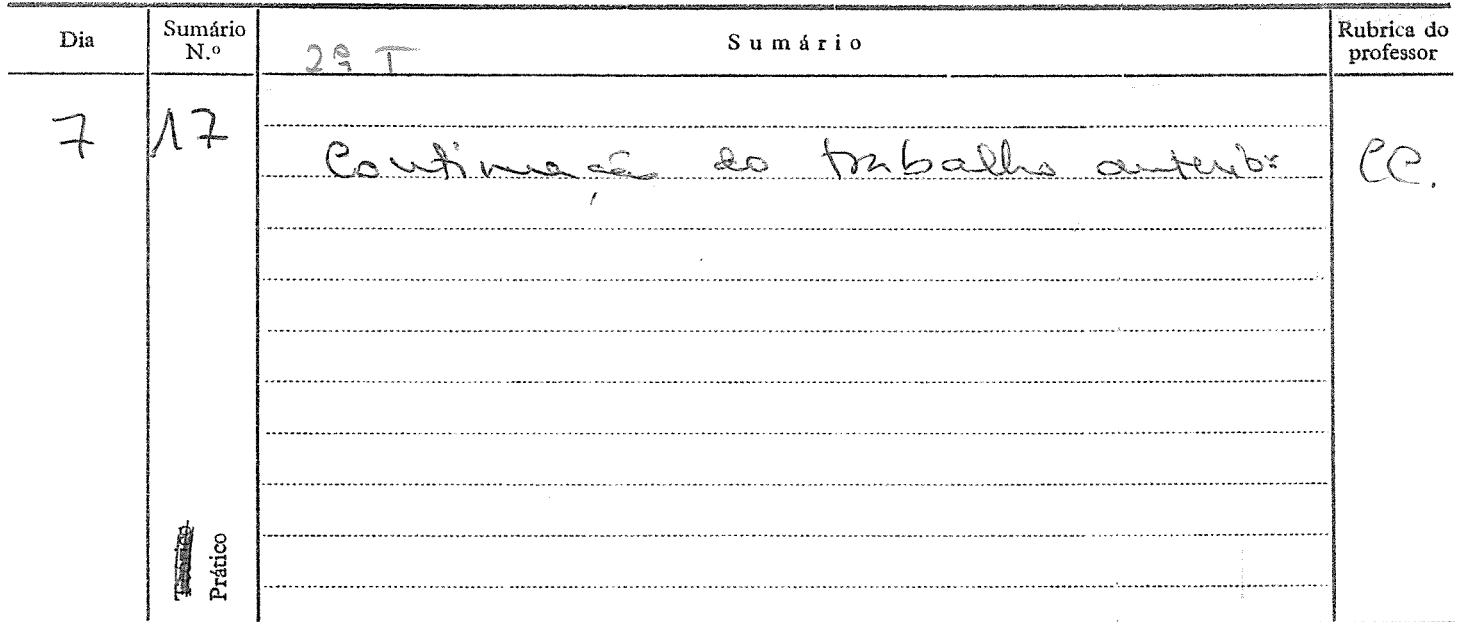 Dia Sumário N.º Sumário Rubrica do professor
2ª T
7 17 Continuação do trabalho anterior CC.
Teórico
Prático